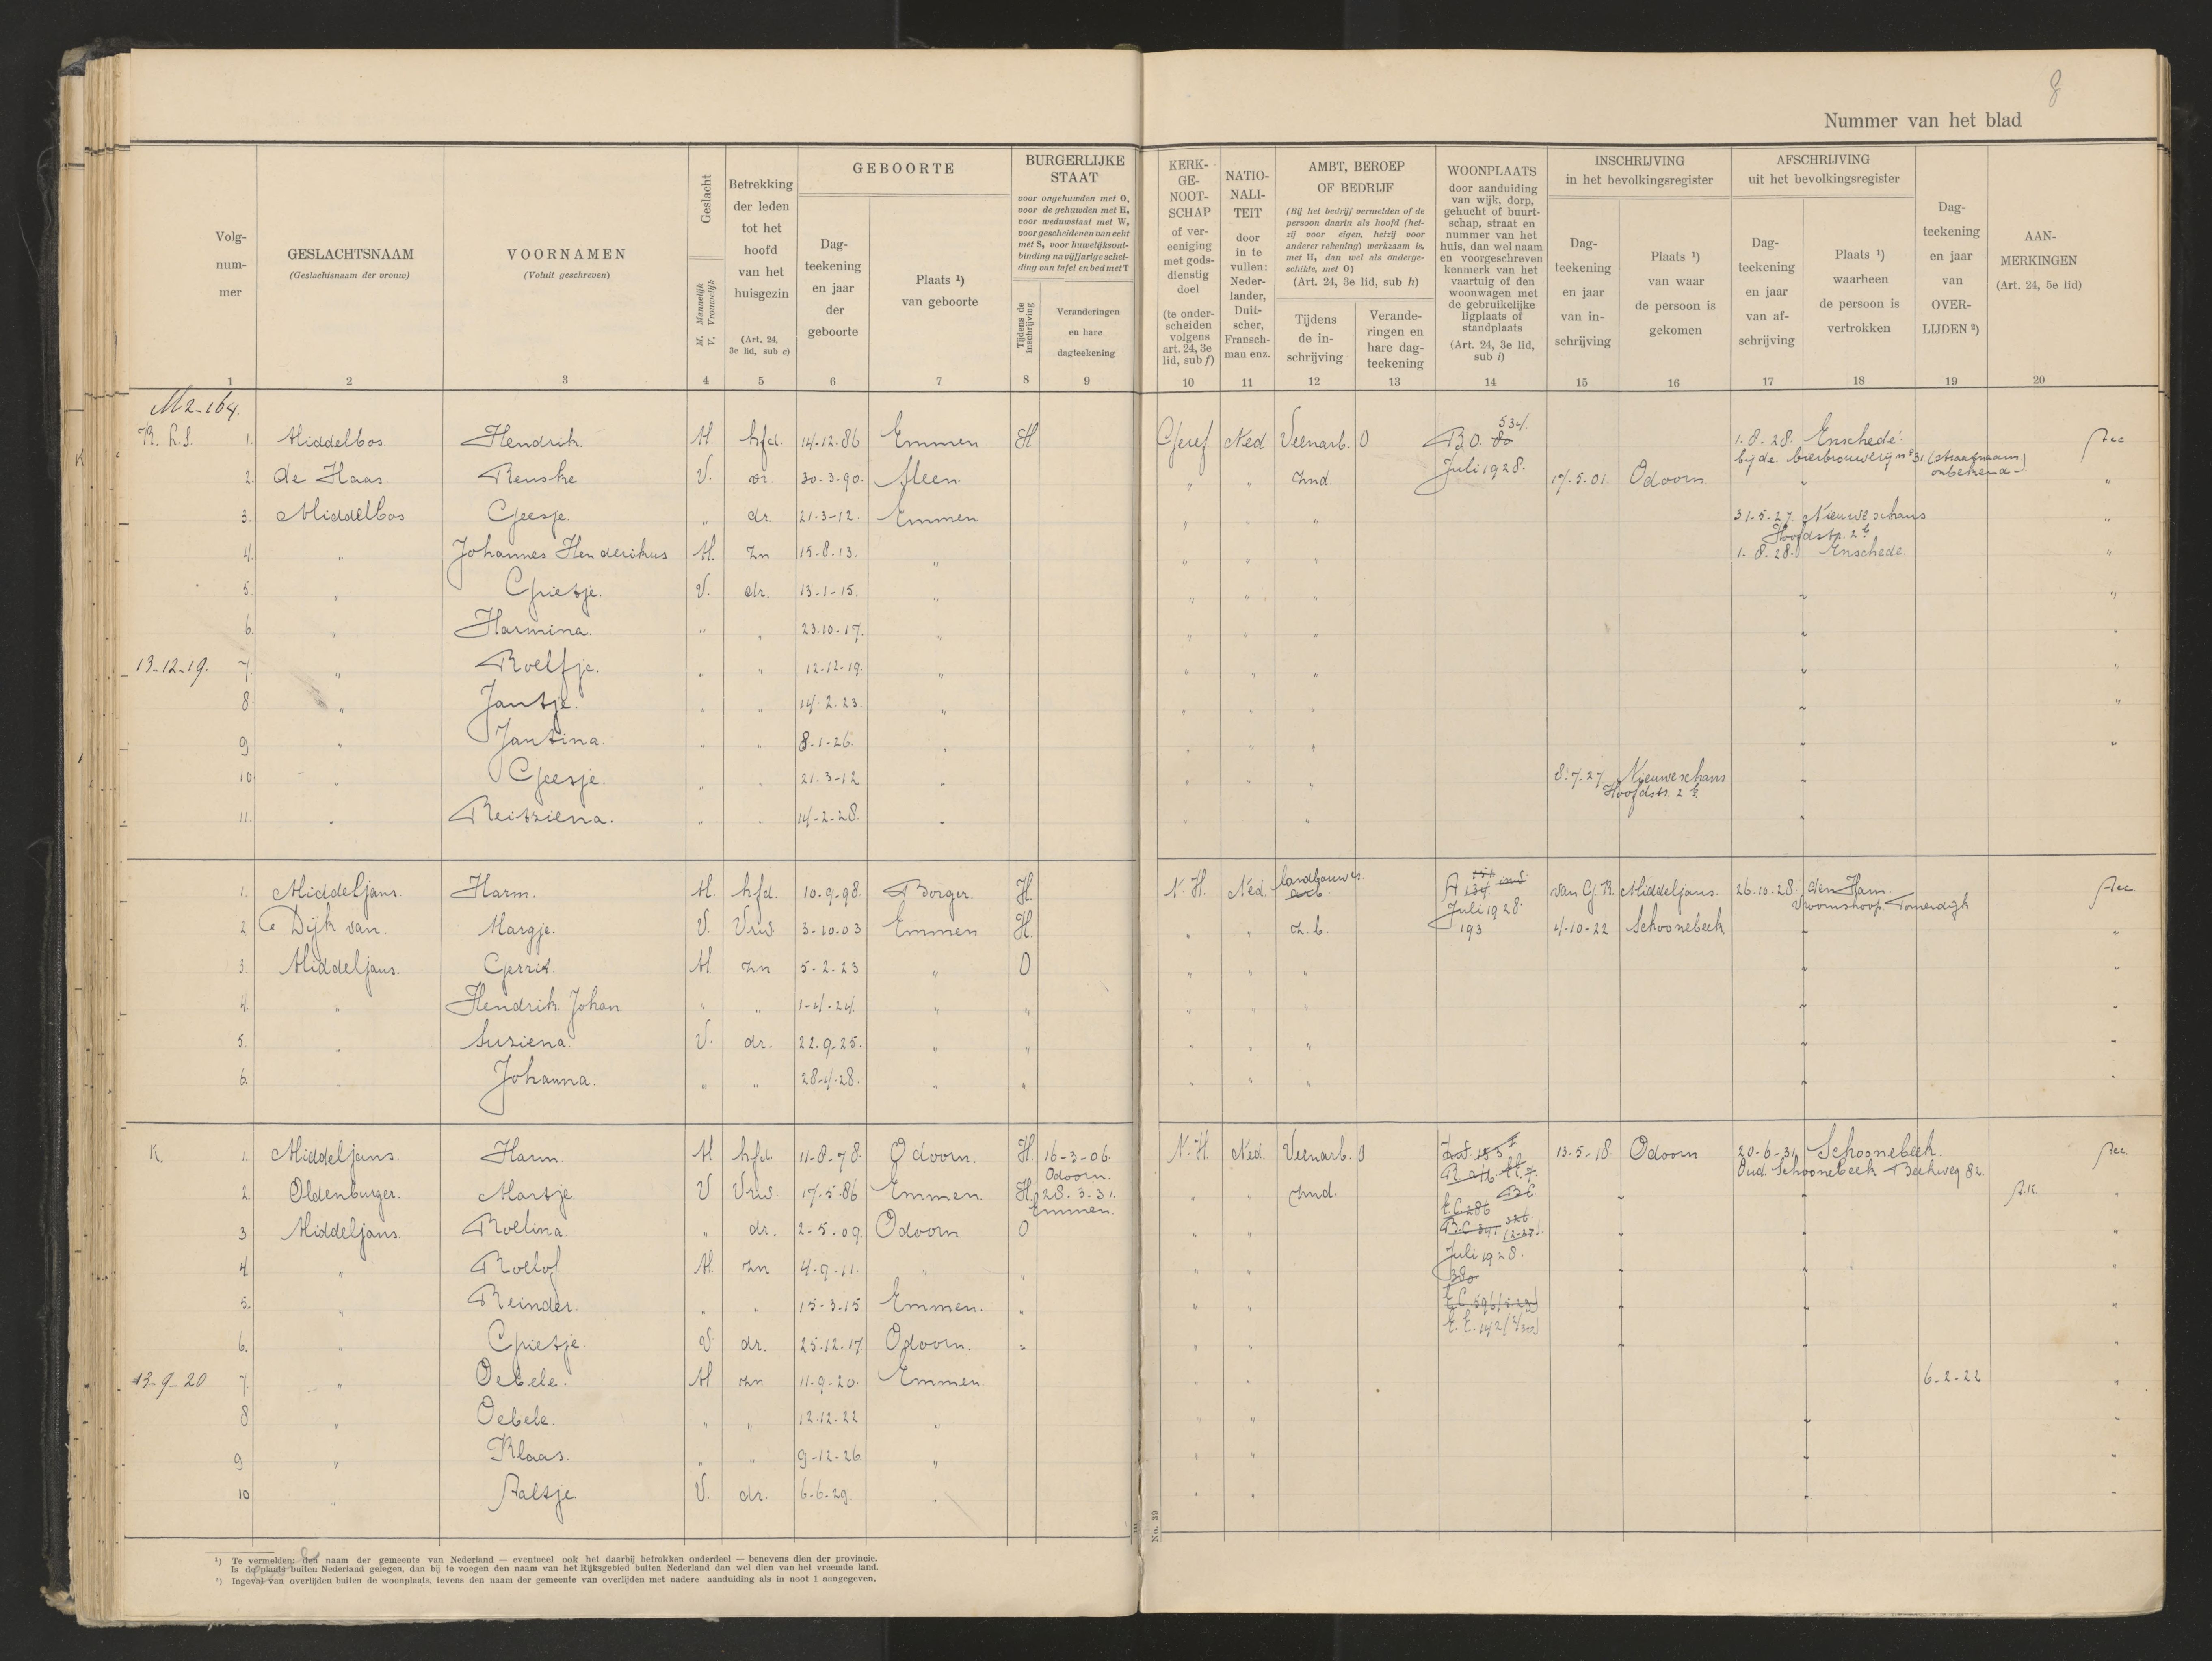 8
Nummer van het blad
Volg-
num-
mer
1
GESLACHTSNAAM
(Geslachtsnaam der vrouw)
2
VOORNAMEN
(Voluit geschreven)
3
Geslacht
M. Mannelijk
V. Vrouwelijk
4
Betrekking
der leden
tot het
hoofd
van het
huisgezin
(Art. 24,
3e lid, sub c)
5
GEBOORTE
Dag-
teekening
en jaar
der
geboorte
6
Plaats ¹)
van geboorte
7
BURGERLIJKE
STAAT
voor ongehuwden met O,
voor de gehuwden met H,
voor weduwstaat met W,
voor gescheidenen van echt
met S, voor huwelijksont-
binding na vijfjarige schei-
ding van tafel en bed met T
Tijdens de
inschrijving
8
Veranderingen
en hare
dagteekening
9
KERK-
GE-
NOOT-
SCHAP
of ver-
eeniging
met gods-
dienstig
doel
(te onder-
scheiden
volgens
art. 24, 3e
lid, sub f)
10
NATIO-
NALI-
TEIT
door
in te
vullen:
Neder-
lander,
Duit-
scher,
Fransch-
man enz.
11
AMBT, BEROEP
OF BEDRIJF
(Bij het bedrijf vermelden of de
persoon daarin als hoofd (het-
zij voor eigen, hetzij voor
anderer rekening) werkzaam is,
met H, dan wel als onderge-
schikte, met O)
(Art. 24, 3e lid, sub h)
Tijdens
de in-
schrijving
12
Verande-
ringen en
hare dag-
teekening
13
WOONPLAATS
door aanduiding
van wijk, dorp,
gehucht of buurt-
schap, straat en
nummer van het
huis, dan wel naam
en voorgeschreven
kenmerk van het
vaartuig of den
woonwagen met
de gebruikelijke
ligplaats of
standplaats
(Art. 24, 3e lid,
sub i)
14
INSCHRIJVING
in het bevolkingsregister
Dag-
teekening
en jaar
van in-
schrijving
15
Plaats ¹)
van waar
de persoon is
gekomen
16
AFSCHRIJVING
uit het bevolkingsregister
Dag-
teekening
en jaar
van af-
schrijving
17
Plaats ¹)
waarheen
de persoon is
vertrokken
18
Dag-
teekening
en jaar
van
OVER-
LIJDEN ²)
19
AAN-
MERKINGEN
(Art. 24, 5e lid)
20
M2-164.
1. Middelbos. Hendrik. M. hfd. 14-12.86 Emmen H Geref. Ned Veenarb. O BO. 80 534. 1.8-28. Enschede.
bij de bierbrouwerij nº 31 (straatnaam
onbekend)
2. de Haas. Renske V. vr. 30-3-90. Sleen. " " znd. Juli 1928. 17-5-01. Odoorn. "
3. Middelbos Geesje. " dr. 21-3-12. Emmen " " " 31-5-27. Nieuweschans "
Hoofdstr. 2
4. " Johannes Henderikus M. zn 15-8-13. " " " " 1-8-28. Enschede. "
5. " Grietje. V. dr. 13-1-15. " " " " "
6. " Harmina. " " 23.10-17. " " " " "
13-12-19. 7. " Roelfje. " " 12-12-19. " " " " "
8. " Jantje. " " 14-2-23. " " " " "
9 " Jantina. " " 8-1-26. " " " " "
10 " Geesje. " " 21-3-12 " " " " 8-7-27 Nieuweschans
Hoofdstr. 2
11. " Reitziena. " " 14-2-28. " " "
1. Middeljans. Harm. M. hfd. 10-9-98. Borger. H. N.H. Ned. landbouwer. A 134 van G.R. Middeljans. 26.10-28. den Ham.
Vroomshoop. Tonnerdijk
Juli 1928.
2 Dijk van. Margje. V. Vrw. 3-10-03 Emmen H. " " z.b. 193 4-10-22 Schoonebeek "
3. Middeljans. Gerrit. M. zn 5-2-23 " O " " " "
4. " Hendrik Johan " " 1-4-24. " " " " "
5. " Suziena. V. dr. 22.9-25. " " " " "
6. " Johanna. " " 28-4-28. " " " " "
K. 1. Middeljans. Harm. M hfd. 11-8-78. Odoorn. H. 16-3-06. N.H. Ned. Veenarb. O 13-5-18. Odoorn 20-6-31. Schoonebeek.
Odoorn. Oud. Schoonebeek Beekweg 82.
2. Oldenburger. Martje. V Vrw. 17-5-86 Emmen. H. 28-3-31. " " znd. A.K. "
Emmen.
3 Middeljans. Roelina. " dr. 2-5-09. Odoorn. O " " "
4. " Roelof. M. zn 4-9-11. " " " " Juli 1928. "
380
5. " Reinder. " " 15-3-15 Emmen. " " " "
6. " Grietje. V dr. 25.12.17. Odoorn. " " " E.E. 142 "
13-9-20 7. " Oebele. M zn 11-9-20. Emmen. " " 6-2-22 "
8 " Oebele. " " 12.12.22 " " " "
9 " Klaas. " " 9-12-26 " " " "
10 " Aaltje V. dr. 6-6-29. " " " "
No. 39
¹) Te vermelden: den naam der gemeente van Nederland — eventueel ook het daarbij betrokken onderdeel — benevens dien der provincie.
Is de plaats buiten Nederland gelegen, dan bij te voegen den naam van het Rijksgebied buiten Nederland dan wel dien van het vreemde land.
²) Ingeval van overlijden buiten de woonplaats, tevens den naam der gemeente van overlijden met nadere aanduiding als in noot 1 aangegeven.